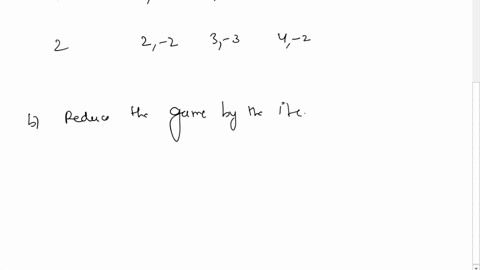 2 2,-2 3,-3 4,-2
b) Reduce the game by the ite.